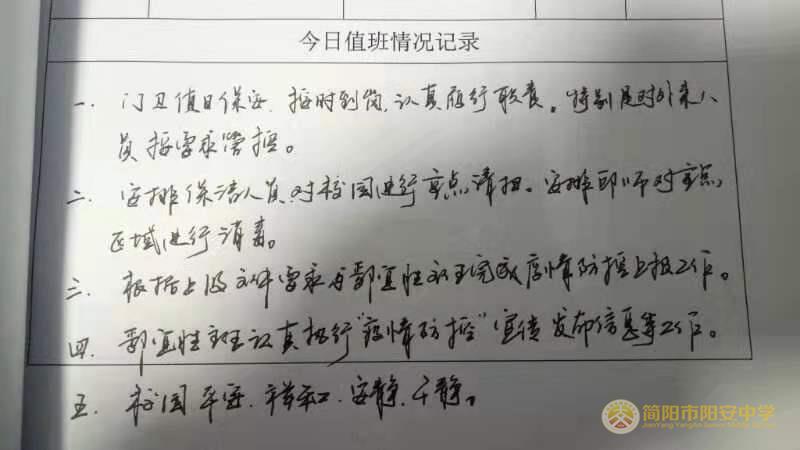 今日值班情况记录
一. 门卫值日保安.按时到岗,认真履行职责。特别是对外来人
员按要求管控。
二. 安排保洁人员对校园进行重点清扫。安排邱师对重点
区域进行消毒。
三. 根据上级文件要求与鄢宜胜主任完成疫情防控上报工作。
四. 鄢宜胜主任认真执行"疫情防控"宣传发布信息等工作。
五. 校园平安.祥和.安静.干静。
简阳市阳安中学